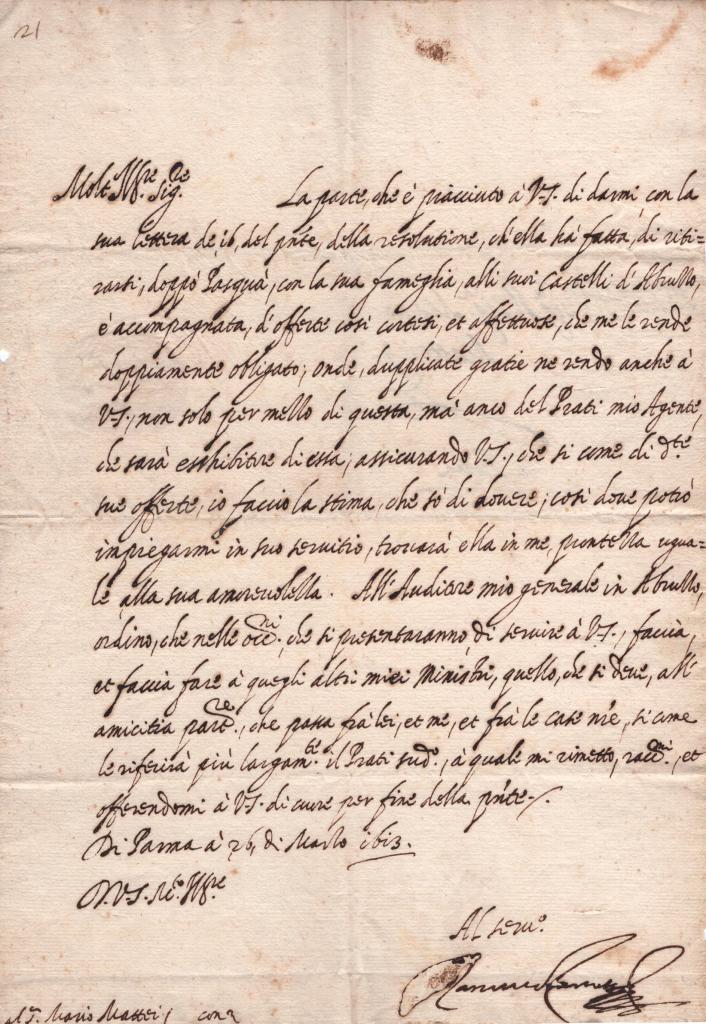 21
Molt' Ill.re Sig.re La parte, che è piacciuto à V.S. di darmi con la
sua lettera de 16, del pñte, della resolutione, ch'ella hà fatta, di riti=
rarsi, doppò Pasquà, con la sua fameglia, alli suoi Castelli d'Abruzzo,
è accompagnata, d'offerte così cortesi, et affettuose, che me le rende
doppiamente obligato; onde, dupplicate gratie ne rendo anche à
V.S., non solo per mezzo di questa, mà anco del Prati mio Agente,
che sarà esshibitore di essa; assicurando V.S., che si come di d.te
sue offerte, io faccio la stima, che sò di dovere; così dove potrò
impiegarmi in suo servitio, trovarà ella in me, prontezza ugua=
le alla sua amorevolezza. All'Auditore mio generale in Abruzzo,
ordino, che nelle occ.ni, che si presentaranno, di servire à V.S., faccia,
et faccia fare à quegli altri miei Ministri, quello, che si deve, all'
amicitia, che passa frà lei, et me, et frà le case nr̃e, si come
le riferirà più largam.te il Prati sud.o, à quale mi rimetto, racc.mi, et
offerendomi à V.S. di cuore per fine della pñte./.
Di Parma à 26, di Marzo 1613.
D. V.S. M.to Ill.re
Al serv.o
Mario Mattei